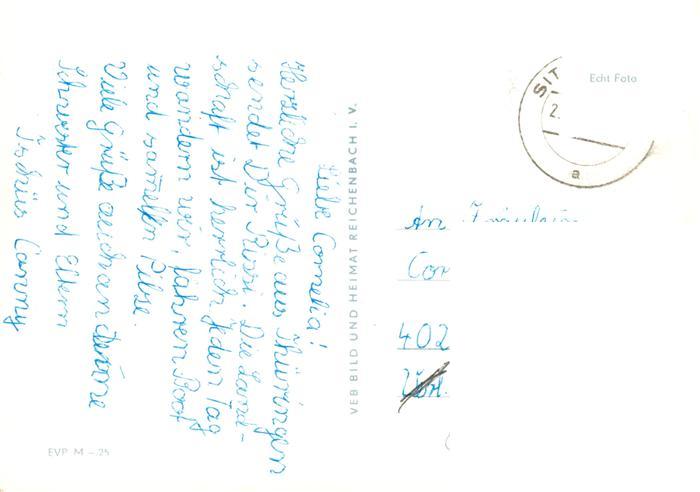 Liebe Cornelia!
Herzliche Grüße aus Thüringen
sendet Dir Rissi. Die Land-
schaft ist herrlich. Jeden Tag
wandern wir, fahren Boot
und sammeln Pilze.
Viele Grüße auch an deine
Schwester und Eltern
Conny
VEB BILD UND HEIMAT REICHENBACH I. V.
EVP M –.25
Echt Foto
SIT
2.
a
An Fräulein
Cor
402